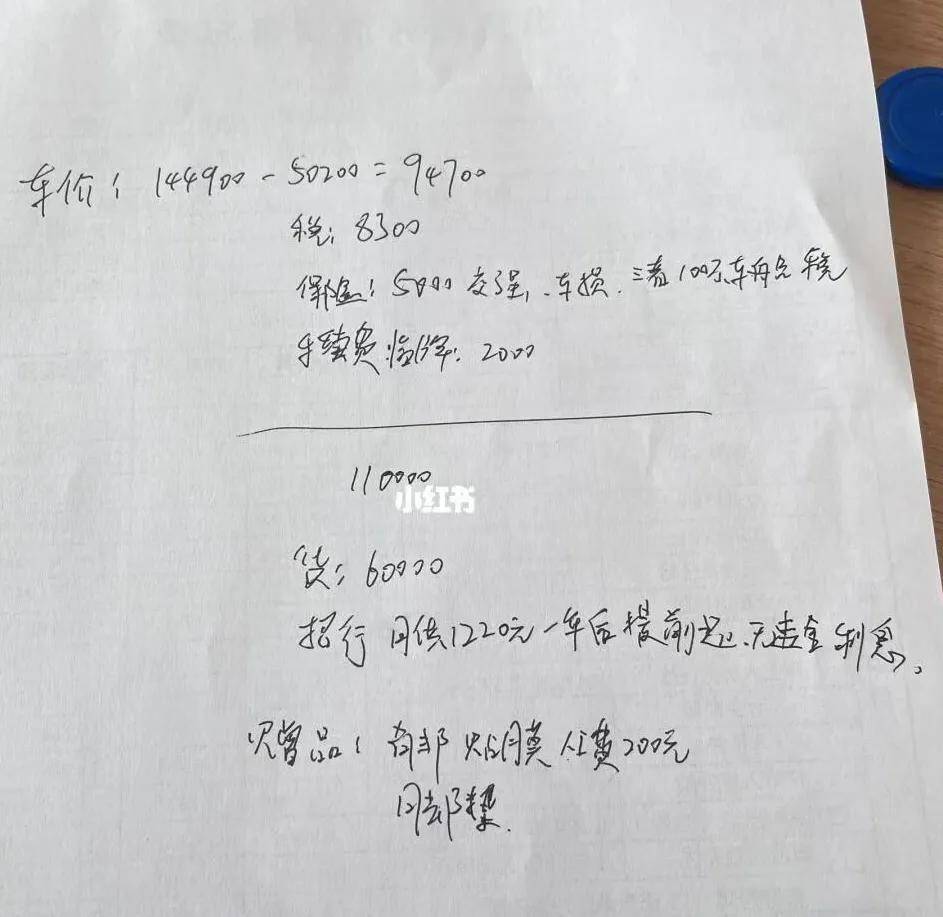 车价：144900-50200=94700
税：8300
保险：5000 交强、车损、三者100万、车船税
手续费 临牌：2000
110000
小红书
贷：60000
招行 月供1220元 一年后提前还、无违金利息。
赠品：前部贴膜 人工费200元
脚垫.